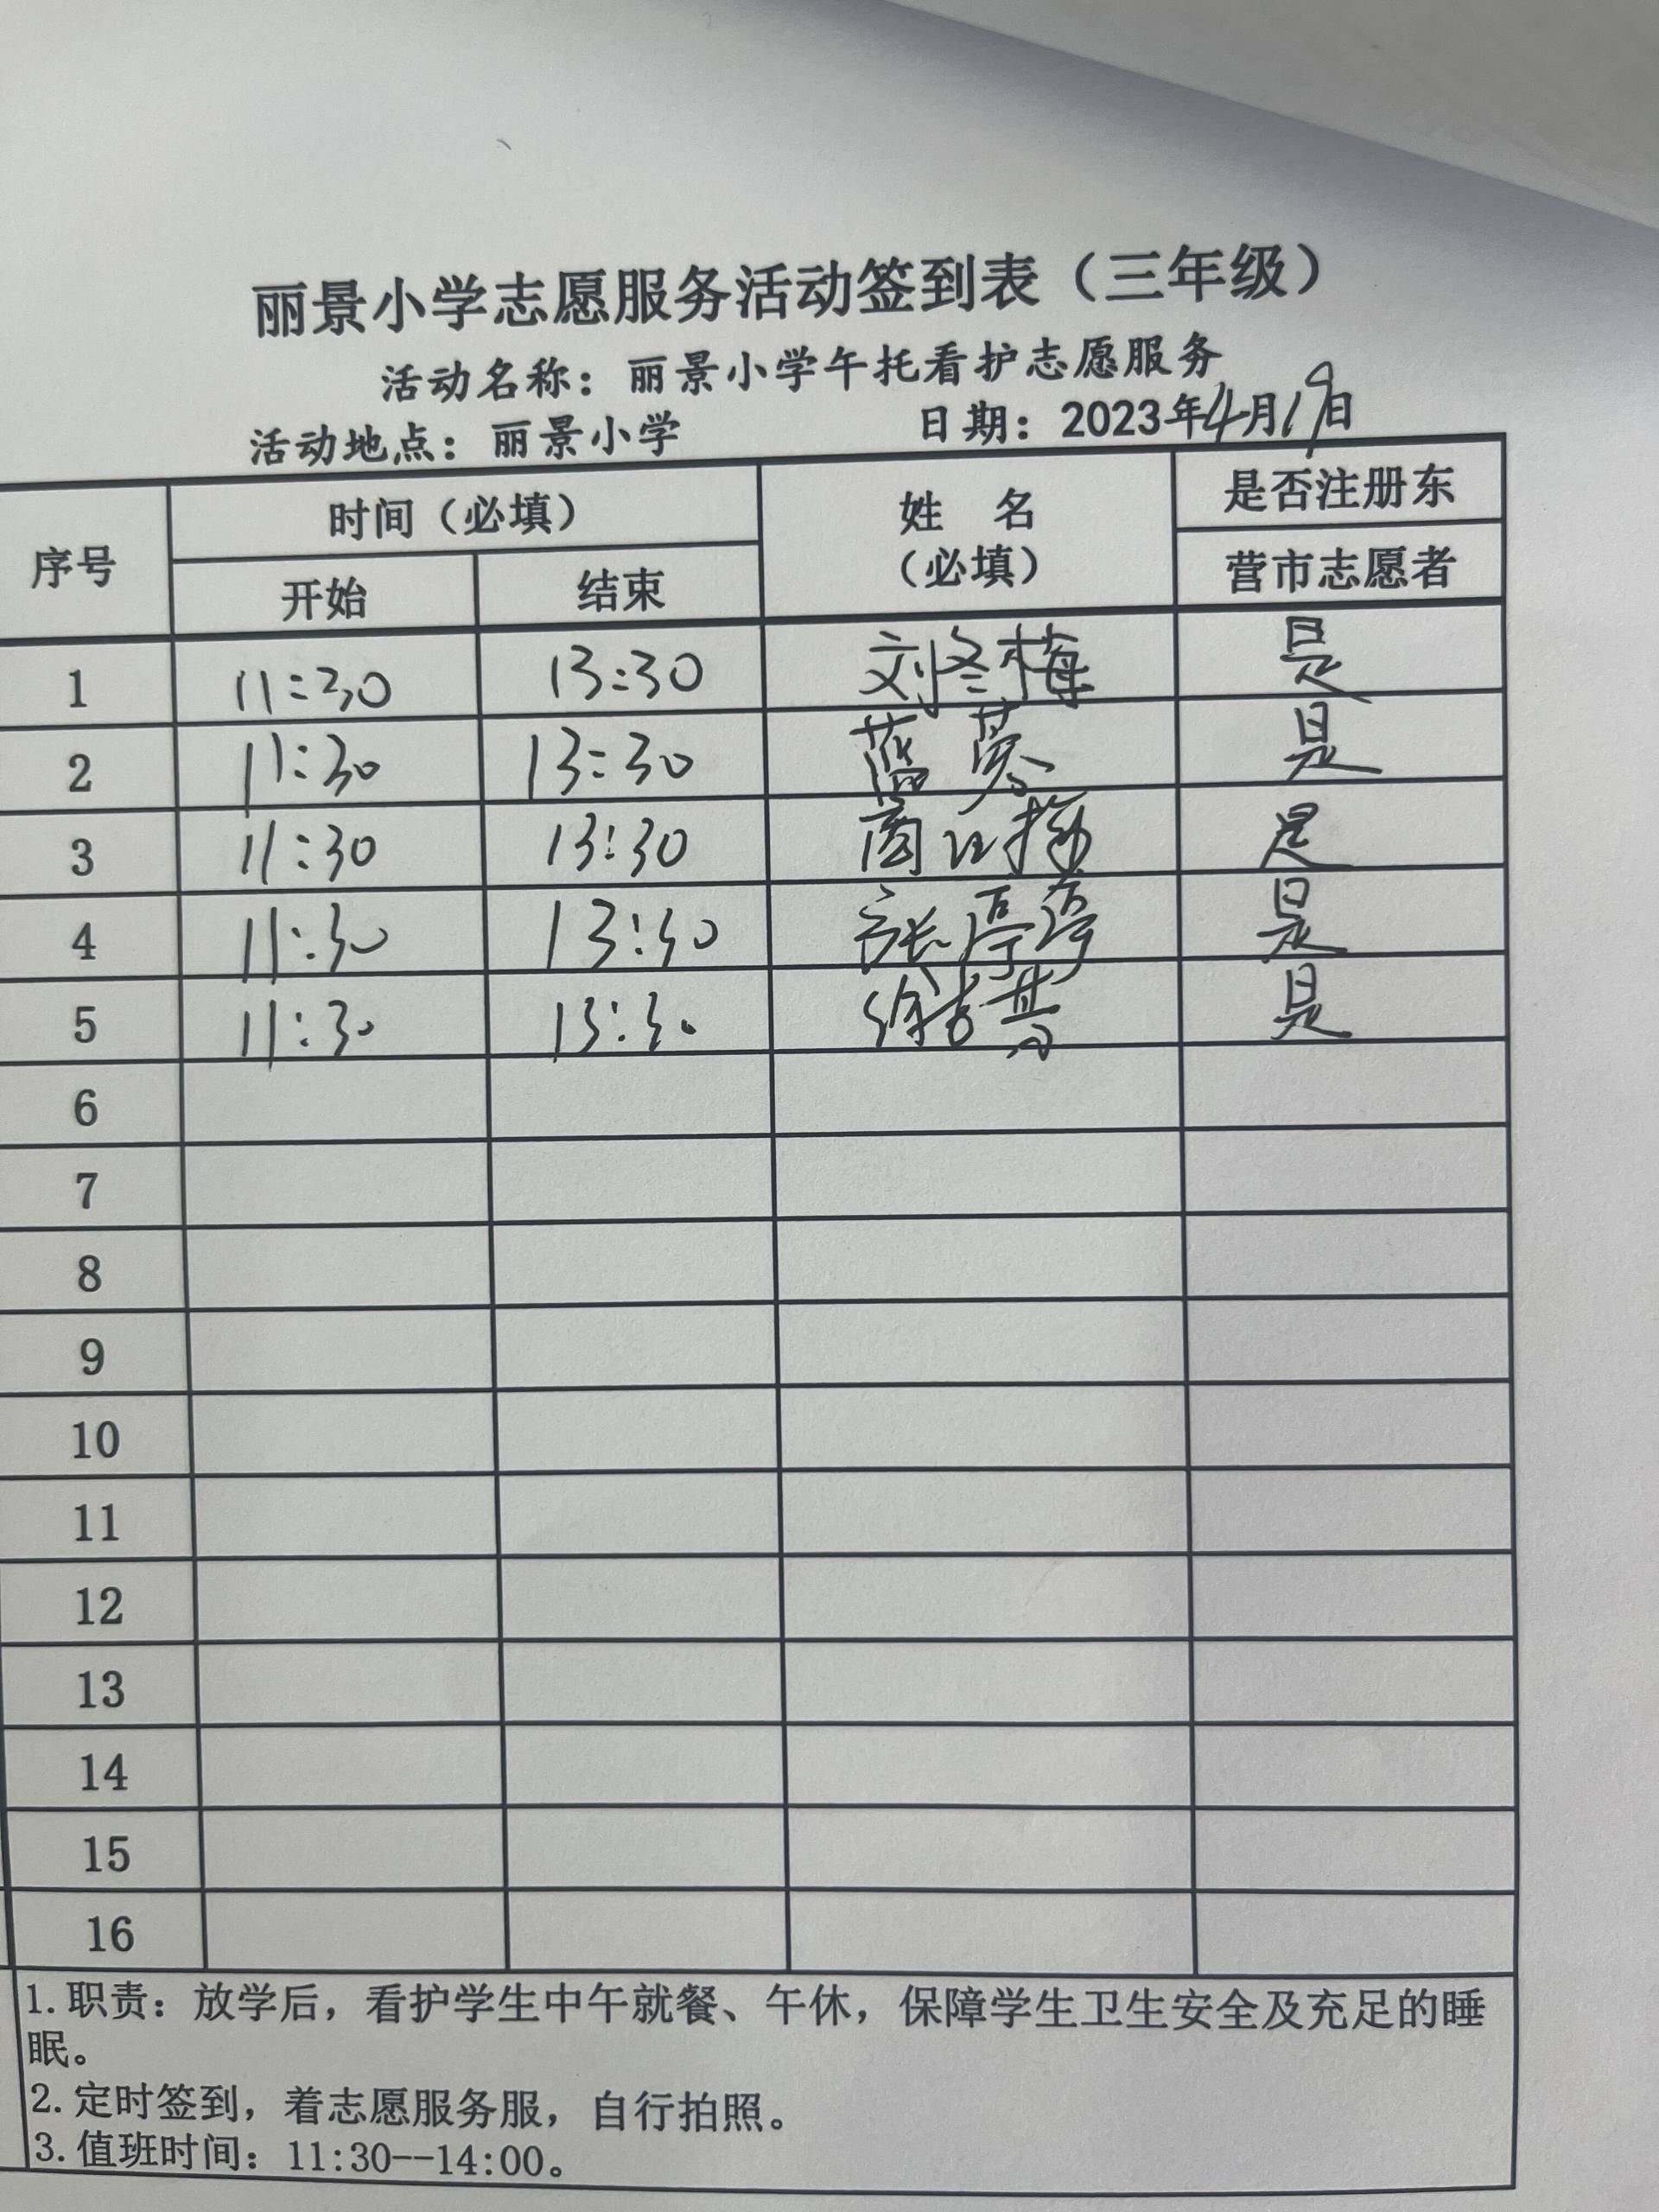 丽景小学志愿服务活动签到表（三年级）
活动名称：丽景小学午托看护志愿服务
活动地点：丽景小学 日期：2023年4月19日
序号 时间（必填） 姓 名 （必填） 是否注册东
营市志愿者
开始 结束
1 11:30 13:30 刘冬梅 是
2 11:30 13:30 蓝 是
3 11:30 13:30 商 是
4 11:30 13:30 张婷婷 是
5 11:30 13:30 徐 是
6
7
8
9
10
11
12
13
14
15
16
1.职责：放学后，看护学生中午就餐、午休，保障学生卫生安全及充足的睡
眠。
2.定时签到，着志愿服务服，自行拍照。
3.值班时间：11:30--14:00。